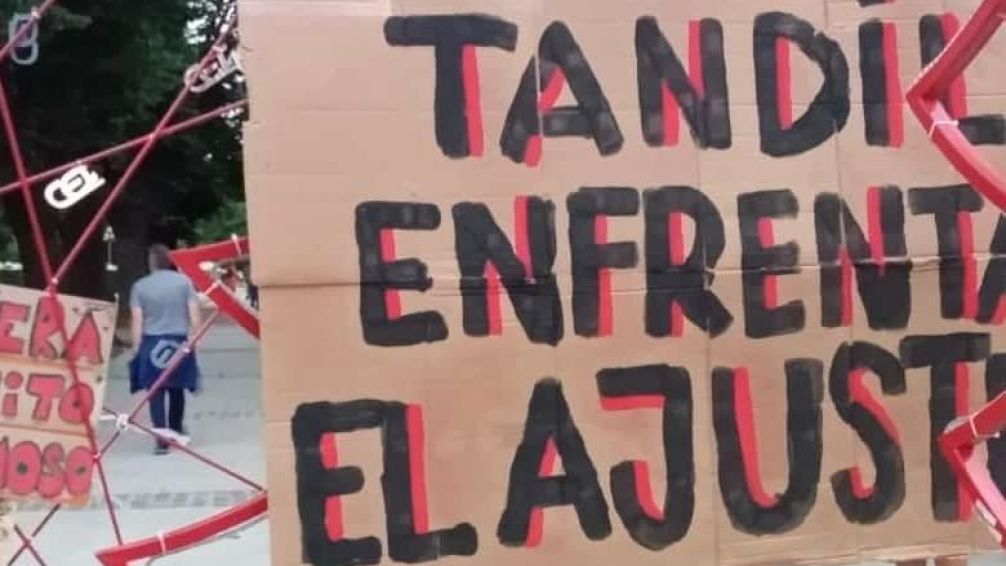 TANDiL
ENFRENTA
EL AJUSTE
ERA
iTO
OSO